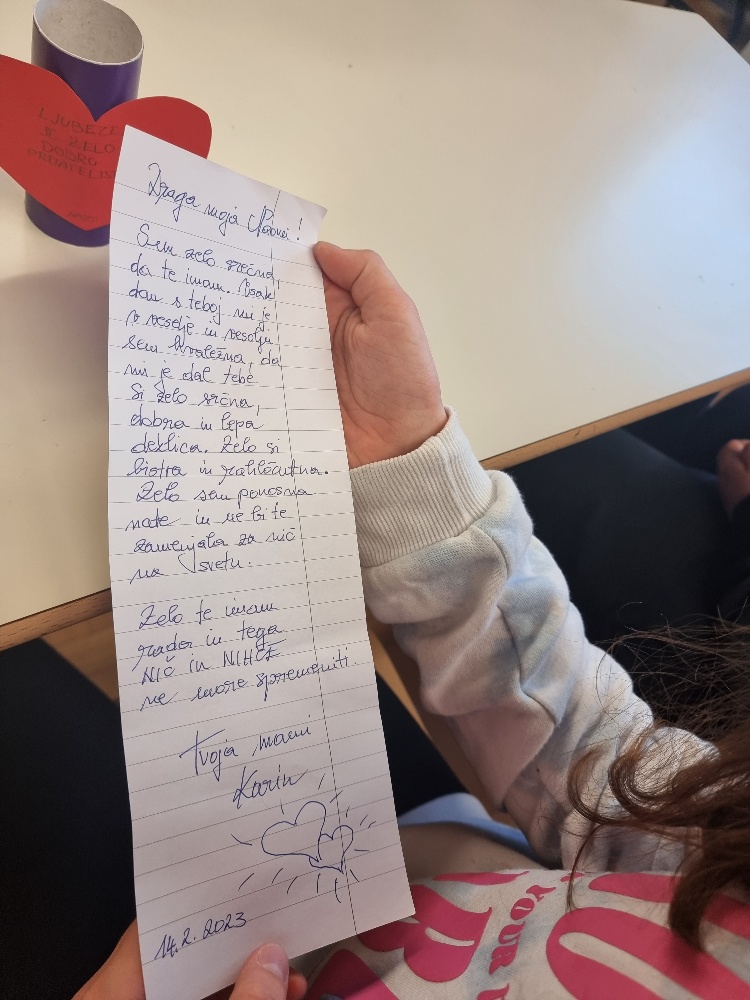 LJUBEZEN
JE ZELO
DOBRO
PRIJATELJSTVO
Draga moja !
Sem zelo srečna,
da te imam. Vsak
dan s teboj mi je
v veselje in vesolju
sem hvaležna, da
mi je dal tebe.
Si zelo srčna,
dobra in lepa
deklica. Zelo si
bistra in rahločutna.
Zelo sem ponosna
nate in ne bi te
zamenjala za nič
na svetu.
Zelo te imam
rada in tega
NIČ in NIHČE
ne more spremeniti.
Tvoja mami
Karin
14.2.2023
YOUR